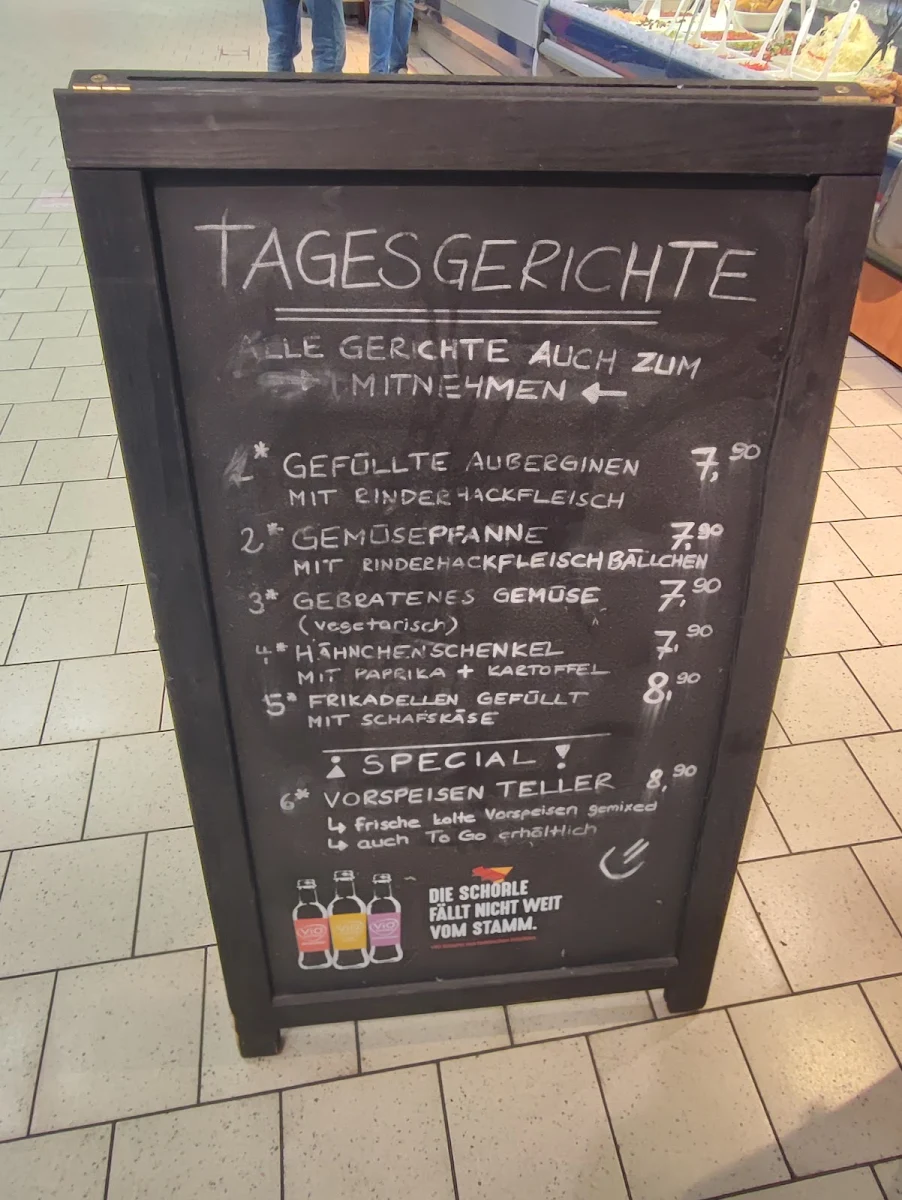 TAGESGERICHTE
ALLE GERICHTE AUCH ZUM
→ MITNEHMEN ←
1* GEFÜLLTE AUBERGINEN 7,90
MIT RINDERHACKFLEISCH
2* GEMÜSEPFANNE 7,90
MIT RINDERHACKFLEISCHBÄLLCHEN
3* GEBRATENES GEMÜSE 7,90
(vegetarisch)
4* HÄHNCHENSCHENKEL 7,90
MIT PAPRIKA + KARTOFFEL
5* FRIKADELLEN GEFÜLLT 8,90
MIT SCHAFSKÄSE
! SPECIAL !
6* VORSPEISEN TELLER 8,90
↳ frische kalte Vorspeisen gemixed
↳ auch To Go erhältlich
ViO ViO ViO
DIE SCHORLE
FÄLLT NICHT WEIT
VOM STAMM.